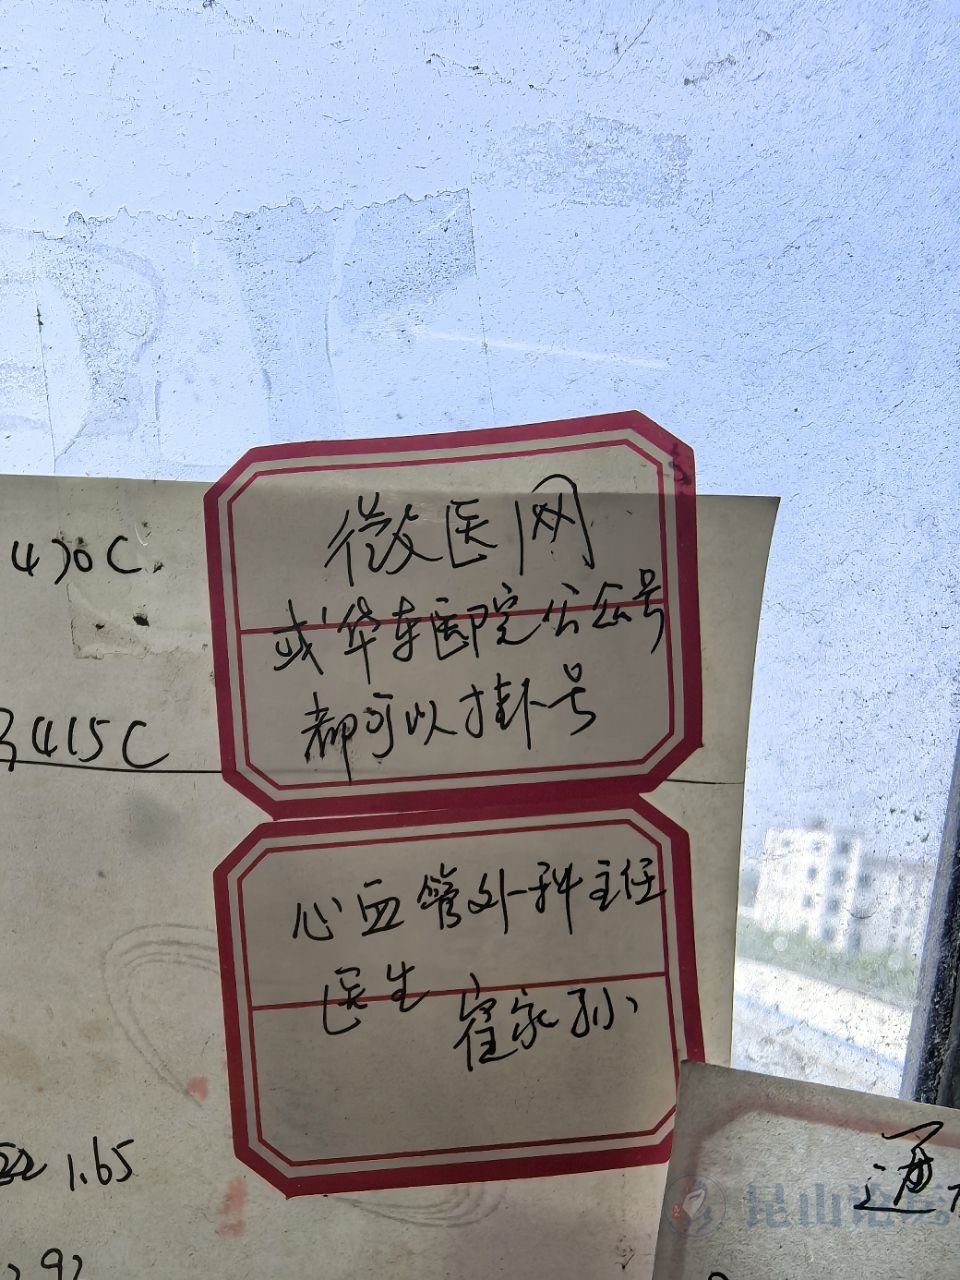 470C
415C
微医网
或华东医院公众号
都可以挂号
心血管外科主任
医生 崔永孙
1.65
通
昆山论坛